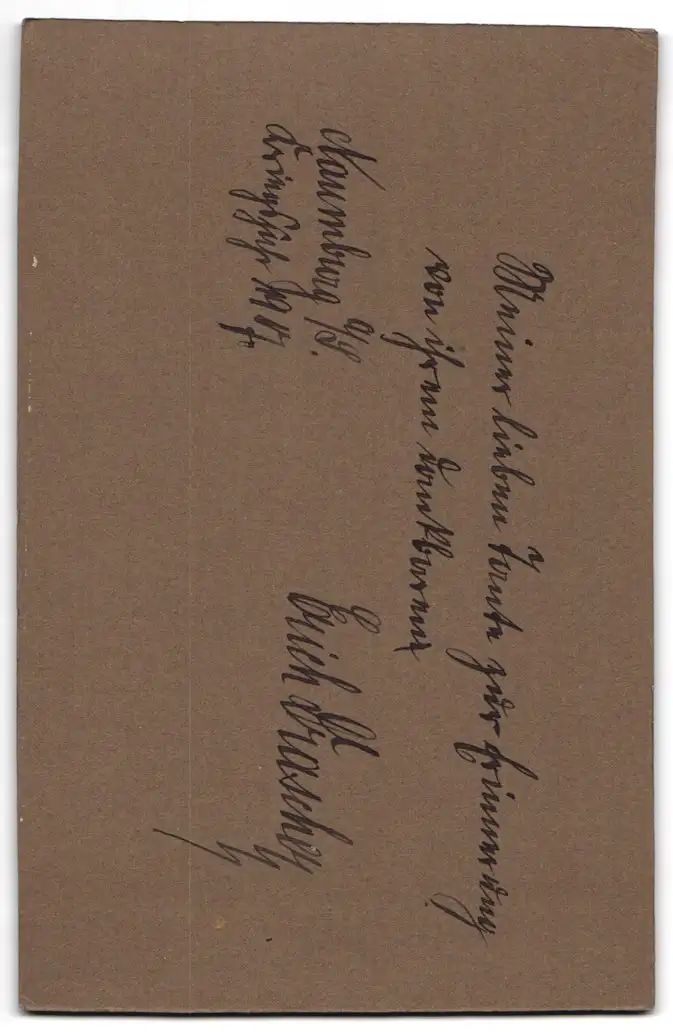 Meiner lieben Tante zur Erinnerung
von ihrem dankbaren
Naumburg a/S.
Kriegsjahr 1917
Erich